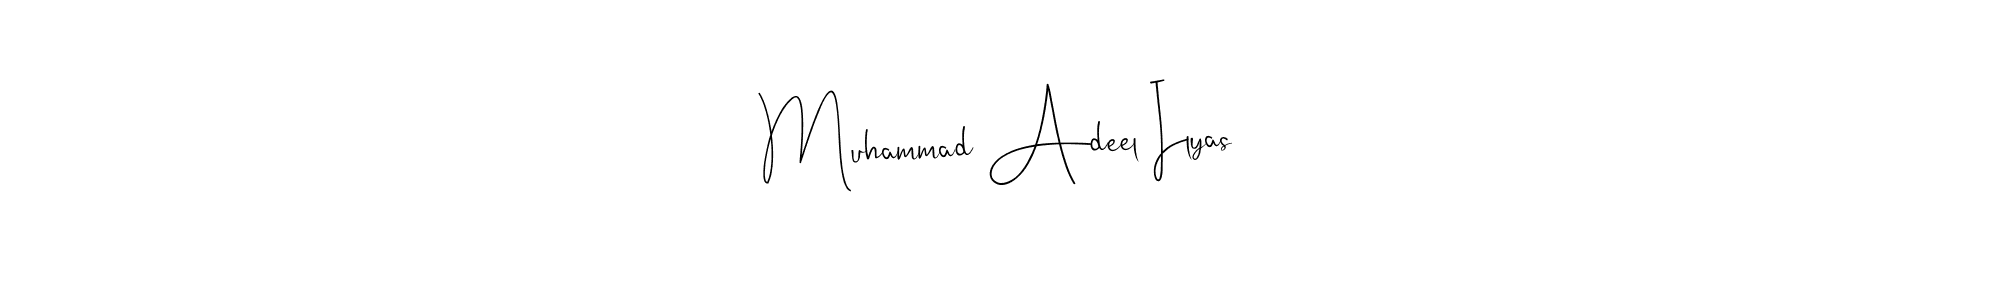 Muhammad Adeel Ilyas